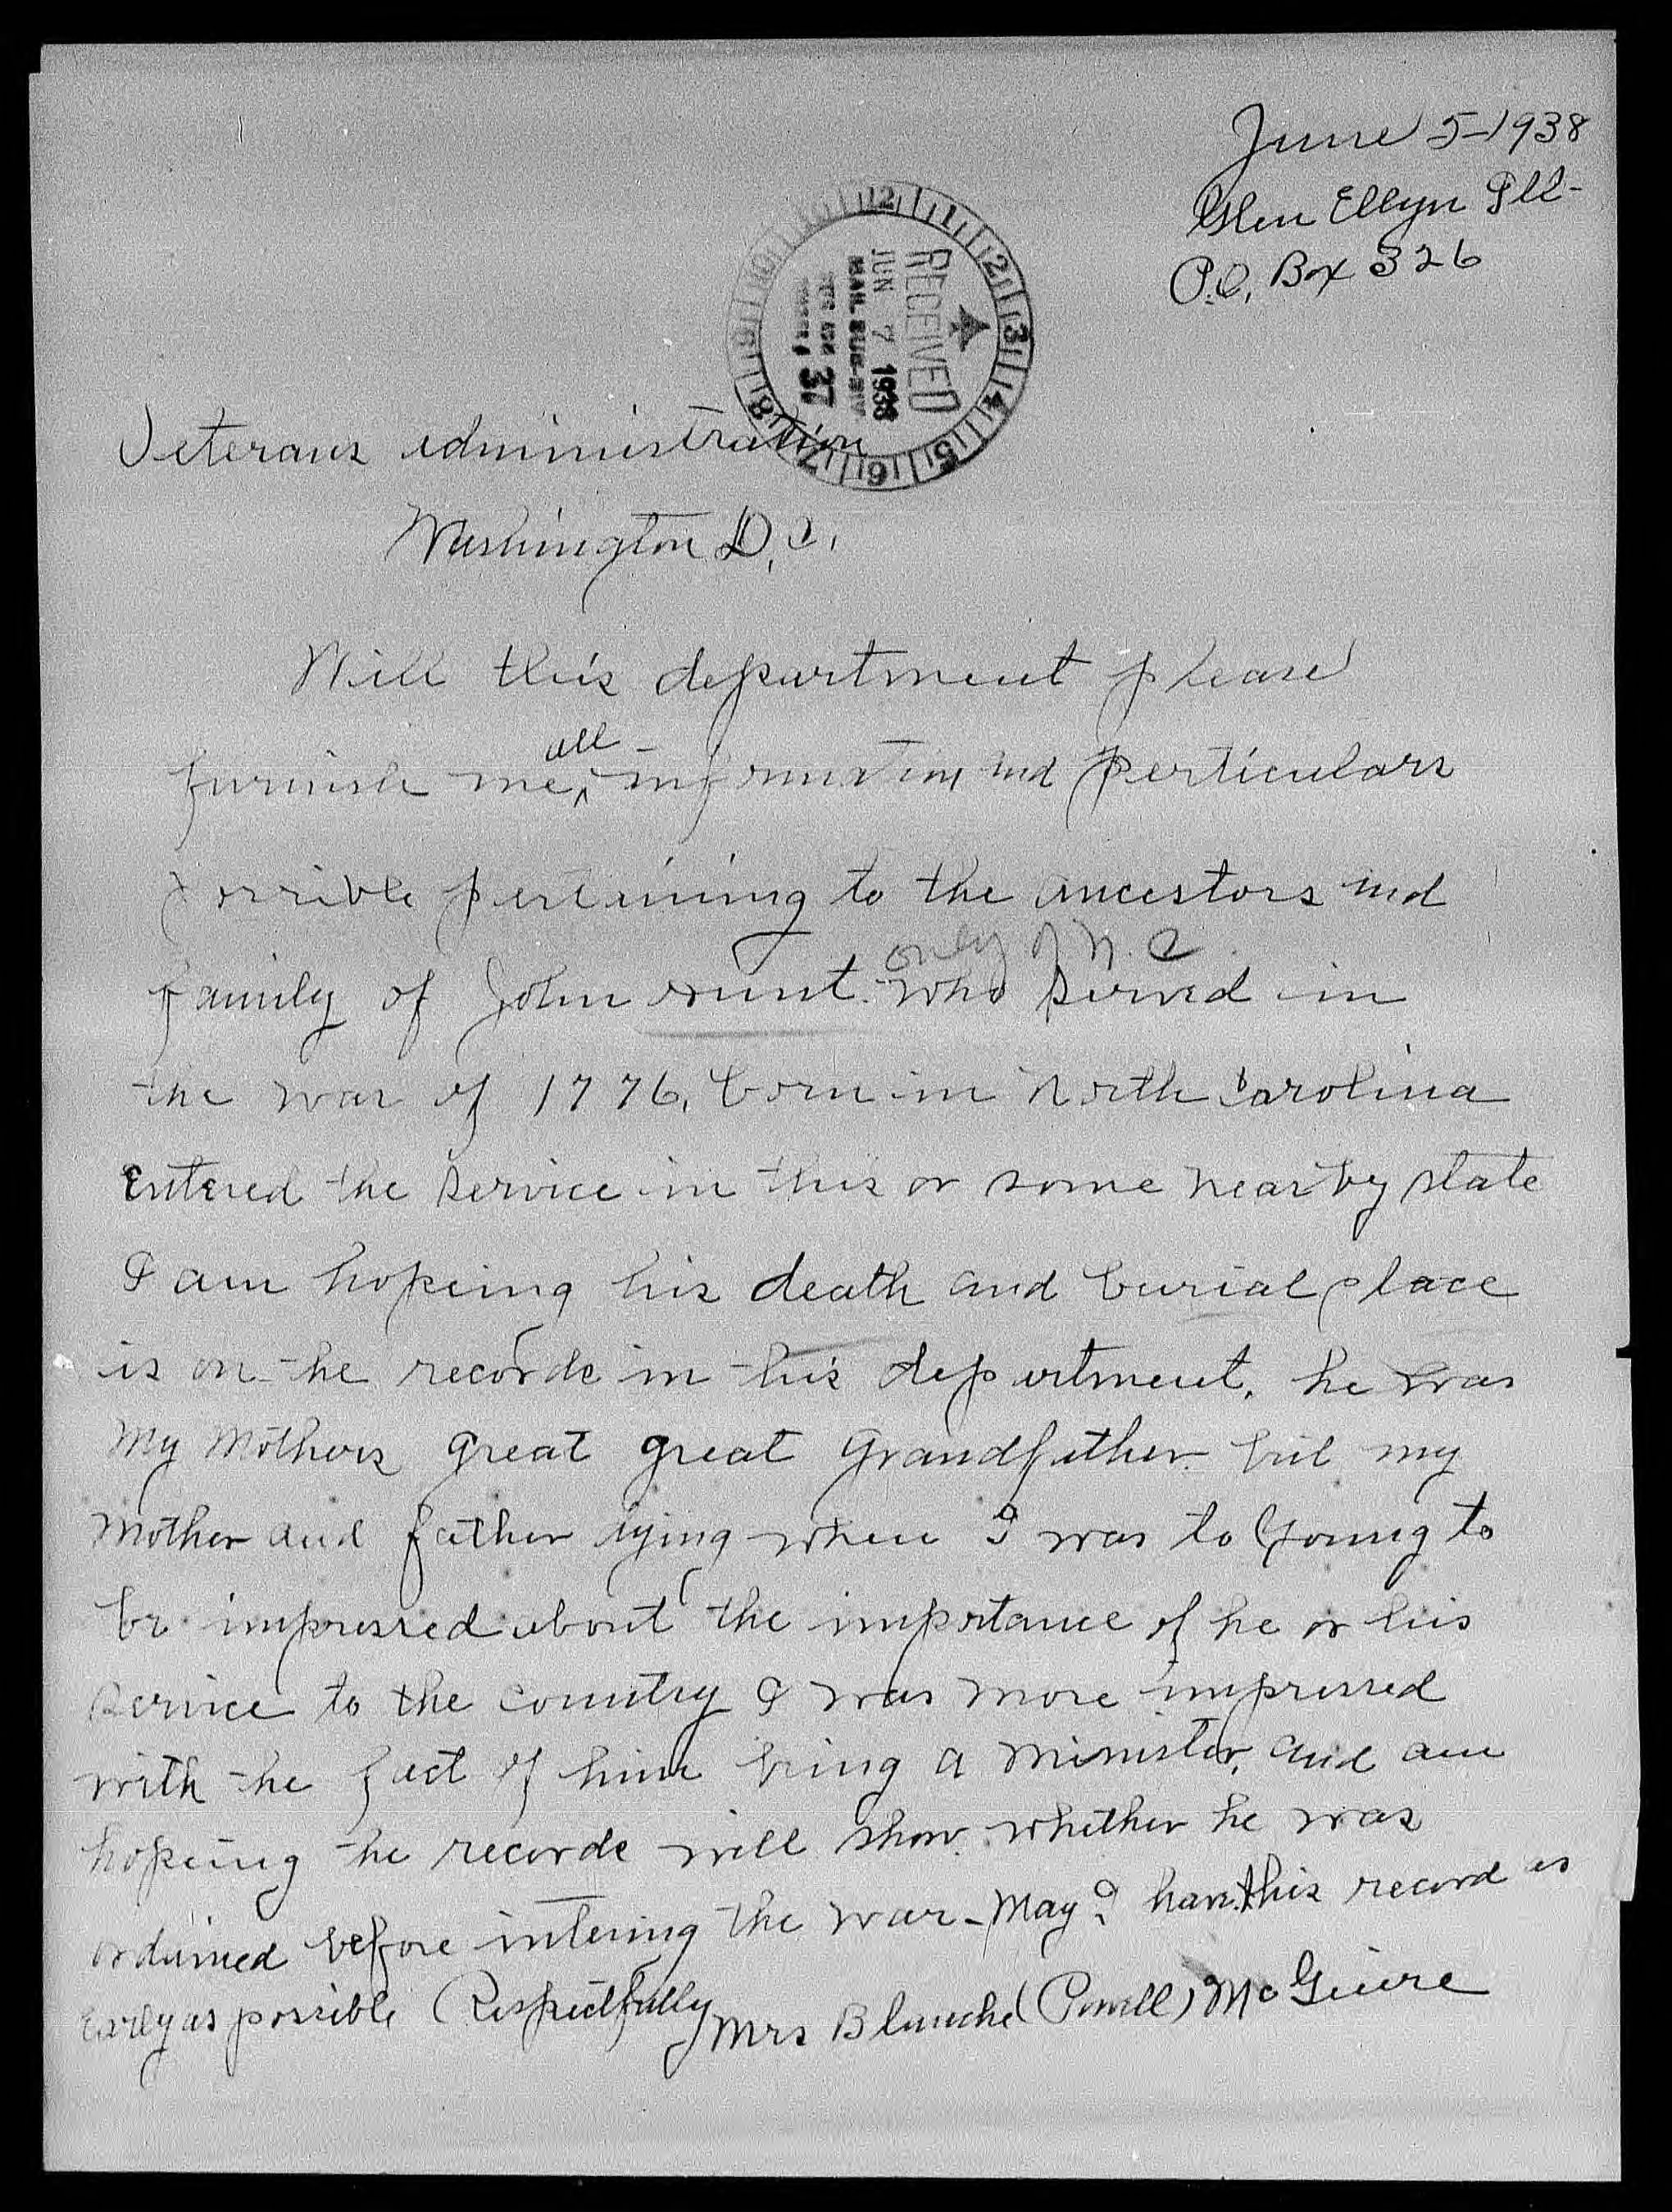 June 5-1938
Glen Ellyn Ill-
P.O. Box 326
RECEIVED
JUN 7 1938
MAIL SUB-DIV
37
12 1 2 3 4 5 6 7 8 9 10
Veterans administration
Washington D.C.
Will this department please
all
furnish me, information and perticulars
possible pertaining to the ancestors and
only of N.C.
family of John Hunt. who served in
the war of 1776, born in North Carolina
Entered the service in this or some near by state
I am hopeing his death and burial place
is on the records in this department. he was
My Mothers great great Grandfather. but my
Mother and father dying when I was to young to
be impressed about the importance of he or his
service to the country I was more impressed
with the fact of him being a minister, and am
hopeing the records will show. whether he was
ordained before intering the war - May I have this record as
Early as possible Respectfully
Mrs Blanche (Powell) McGuire